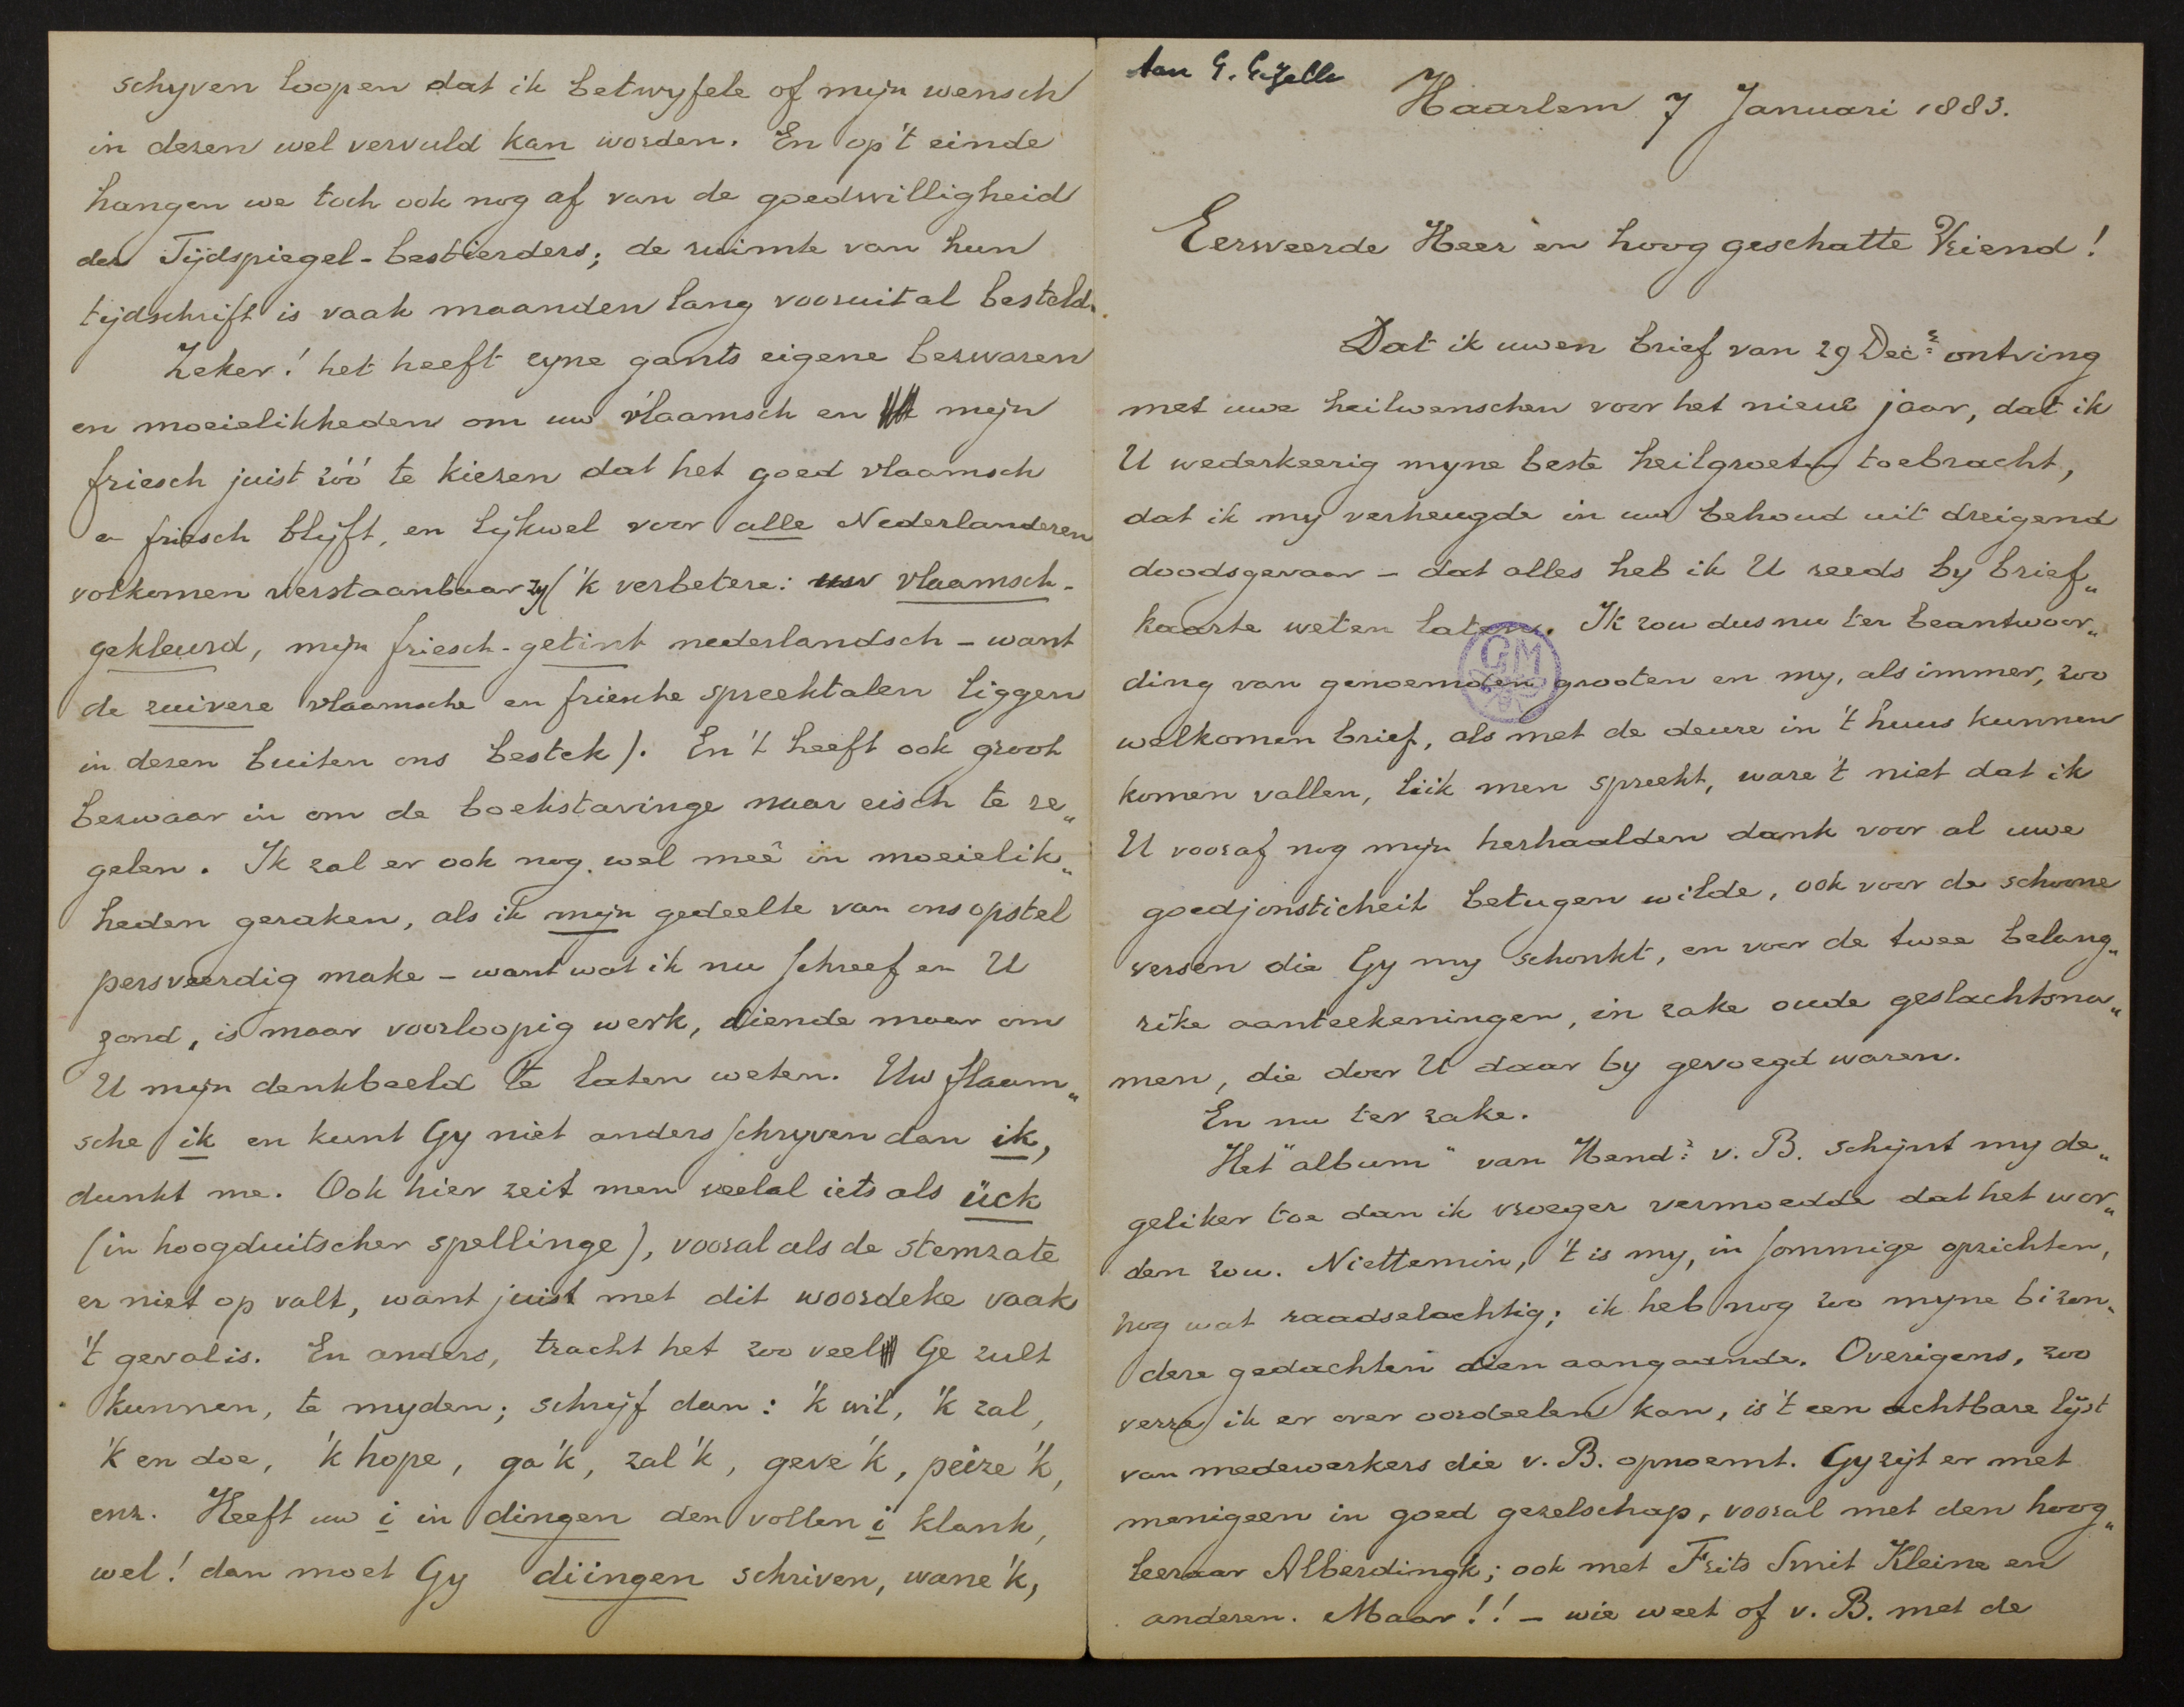 schyven loopen dat ik betwyfele of mijn wensch
in dezen wel vervuld kan worden. En op 't einde
hangen we toch ook nog af van de goedwilligheid
der Tijdspiegel-bestierders; de ruimte van hun
tijdschrift is vaak maanden lang vooruit al besteld.
Zeker! het heeft zyne gants eigene bezwaren
en moeielikheden om uw vlaamsch en mijn
friesch juist zóó te kiezen dat het goed vlaamsch
en friesch blijft, en lijkwel voor alle Nederlanderen
volkomen verstaanbaar zy ('k verbetere: uw vlaamsch-
gekleurd, mijn friesch-getint nederlandsch – want
de zuivere vlaamsche en friesche spreektalen liggen
in dezen buiten ons bestek). En 't heeft ook groot
bezwaar in om de boekstavinge naar eisch te re„
gelen. Ik zal er ook nog wel meê in moeielik„
heden geraken, als ik mijn gedeelte van ons opstel
persveerdig make – want wat ik nu schreef en U
zond, is maar voorloopig werk, diende maar om
U mijn denkbeeld te laten weten. Uw flaam„
sche ik en kunt Gy niet anders schryven dan ik,
dunkt me. Ook hier zeit men veelal iets als ück
(in hoogduitscher spellinge), vooral als de stemzate
er niet op valt, want juist met dit woordeke vaak
't geval is. En anders, tracht het zoo veel Ge zult
kunnen, te myden; schrijf dan: 'k wil, 'k zal,
'k en doe, 'k hope, ga'k, zal'k, geve'k, peize'k,
enz. Heeft uw i in dingen den vollen i klank,
wel! dan moet Gy diingen schriven, wane'k,
Aan G. Gezelle
Haarlem 7 Januari 1883.
Eerweerde Heer en hoog geschatte Vriend!
Dat ik uwen brief van 29 Decr ontving
met uwe heilwenschen voor het nieuwe jaar, dat ik
U wederkeerig myne beste heilgroeten toebracht,
dat ik my verheugde in uw behoud uit dreigend
doodsgevaar – dat alles heb ik U reeds by brief„
kaarte weten laten. Ik zou dus nu ter beantwoor„
ding van genoemden grooten en my, als immer, zoo
welkomen brief, als met de deure in 't huus kunnen
komen vallen, liik men spreekt, ware 't niet dat ik
U vooraf nog mijn herhaalden dank voor al uwe
goedjonsticheit betugen wilde, ook voor de schoone
versen die Gy my schonkt, en voor de twee belang„
rike aanteekeningen, in zake oude geslachtsna„
men, die door U daar by gevoegd waren.
En nu ter zake.
Het "album" van Hendr v. B. schijnt my de„
geliker toe dan ik vroeger vermoedde dat het wor„
den zou. Niettemin, 't is my, in sommige opzichten,
nog wat raadselachtig; ik heb nog zoo myne bizon„
dere gedachten dien aangaande. Overigens, zoo
verre ik er over oordeelen kan, is 't een achtbare lijst
van medewerkers die v. B. opnoemt. Gy zijt er met
menigeen in goed gezelschap, vooral met den hoog„
leeraar Alberdingk; ook met Frits Smit Kleine en
anderen. Maar!! – wie weet of v. B. met de
GM